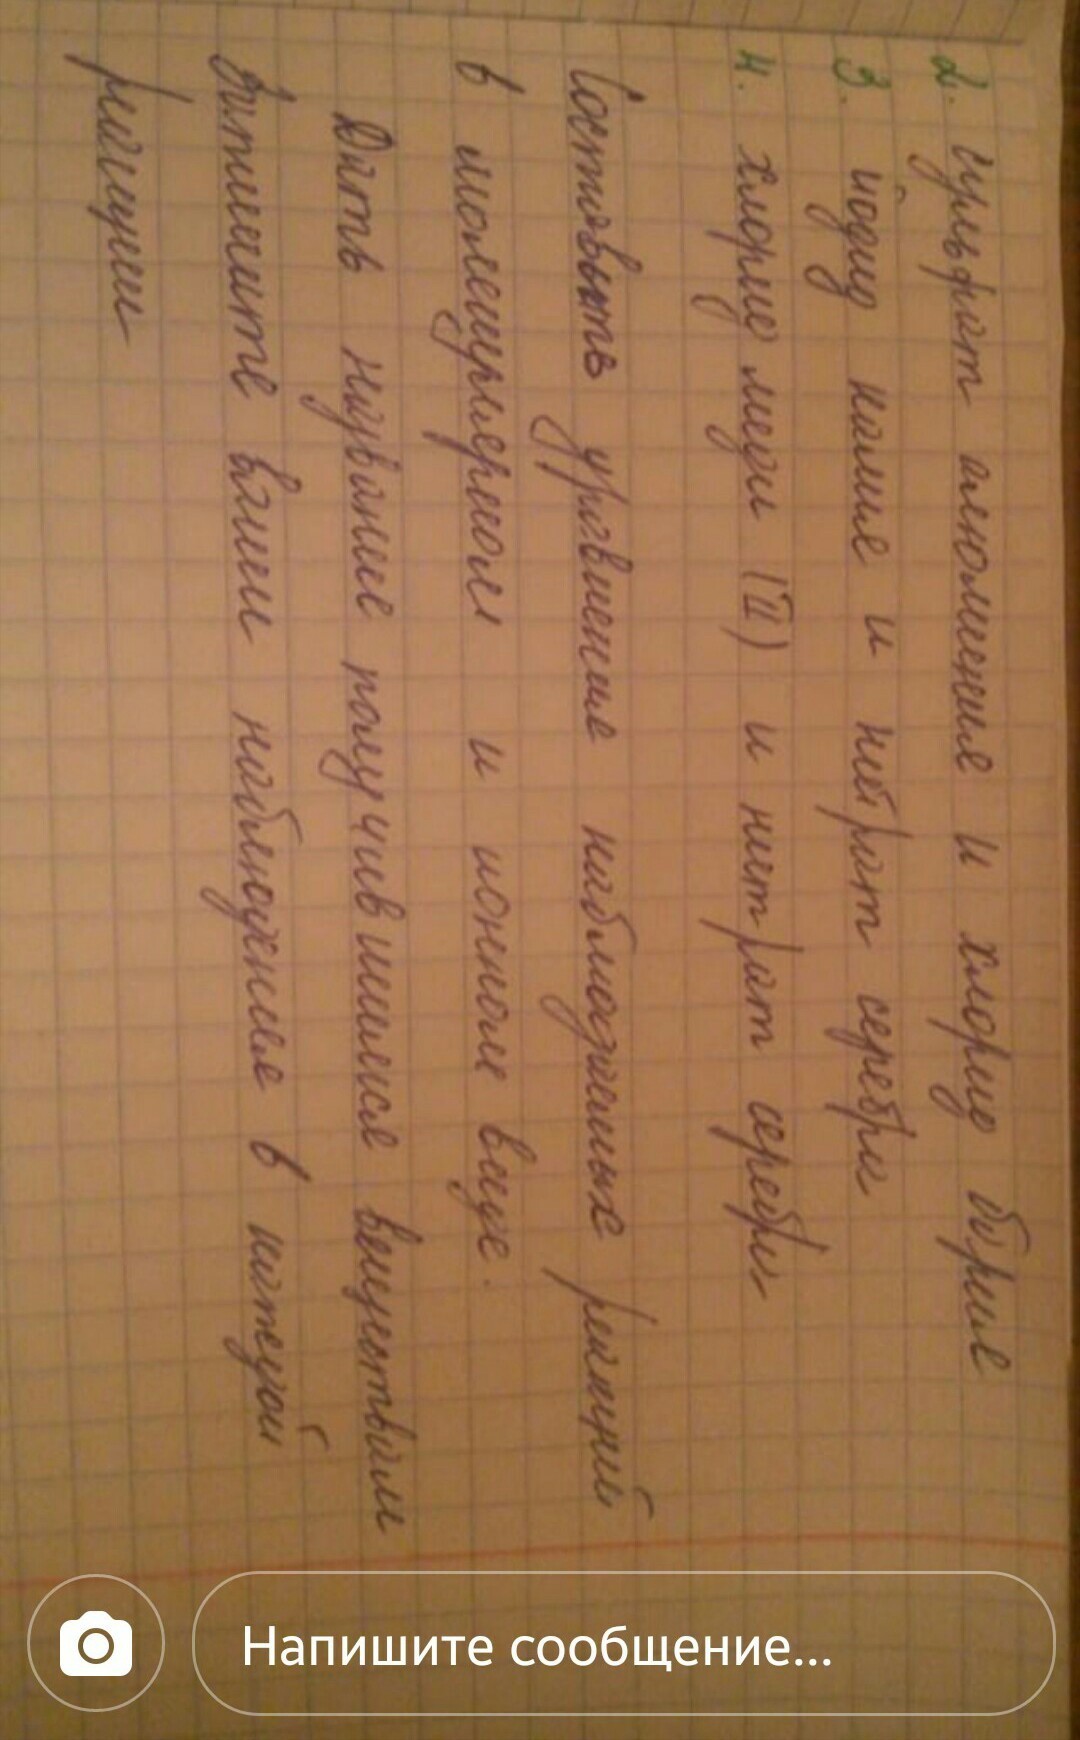 2. Сульфат алюминия и хлорид бария
3. йодид калия и нитрат серебра
4. хлорид меди (II) и нитрат серебра
Составить уравнение наблюдаемых реакций
в молекулярном и ионном виде.
Дать название получившимся веществам
Запишите ваши наблюдения в каждой
реакции
Напишите сообщение...